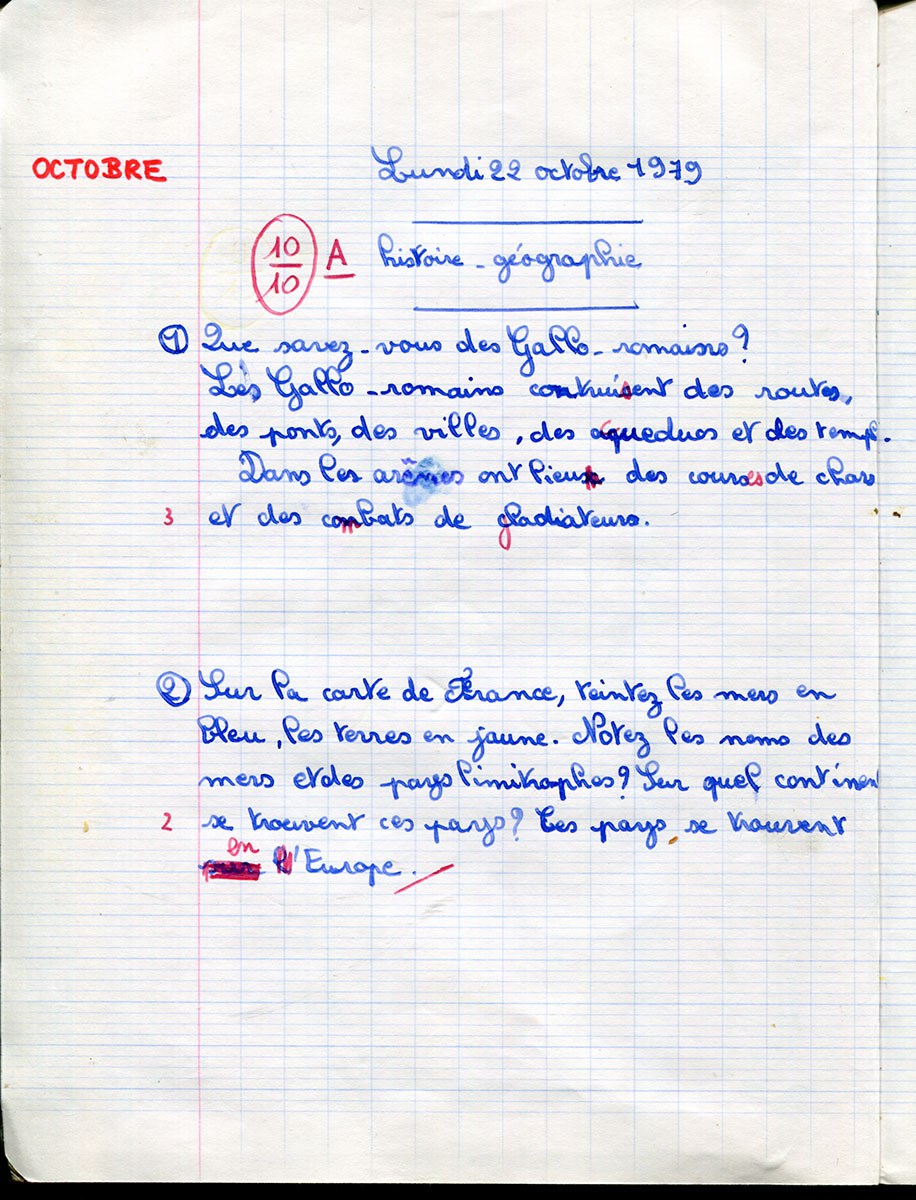 OCTOBRE
Lundi 22 octobre 1979
10/10 A histoire - géographie
① Que savez-vous des Gallo-romains?
Les Gallo-romains contruisent des routes,
des ponts, des villes, des aqueducs et des templ.
Dans les arènes ont lieu des courses de chars
3 et des combats de gladiateurs.
② Sur la carte de France, teintez les mers en
bleu, les terres en jaune. Notez les noms des
mers et des pays limitrophes? Sur quel continen
2 se trouvent ces pays? Ces pays se trouvent
en
l'Europe.